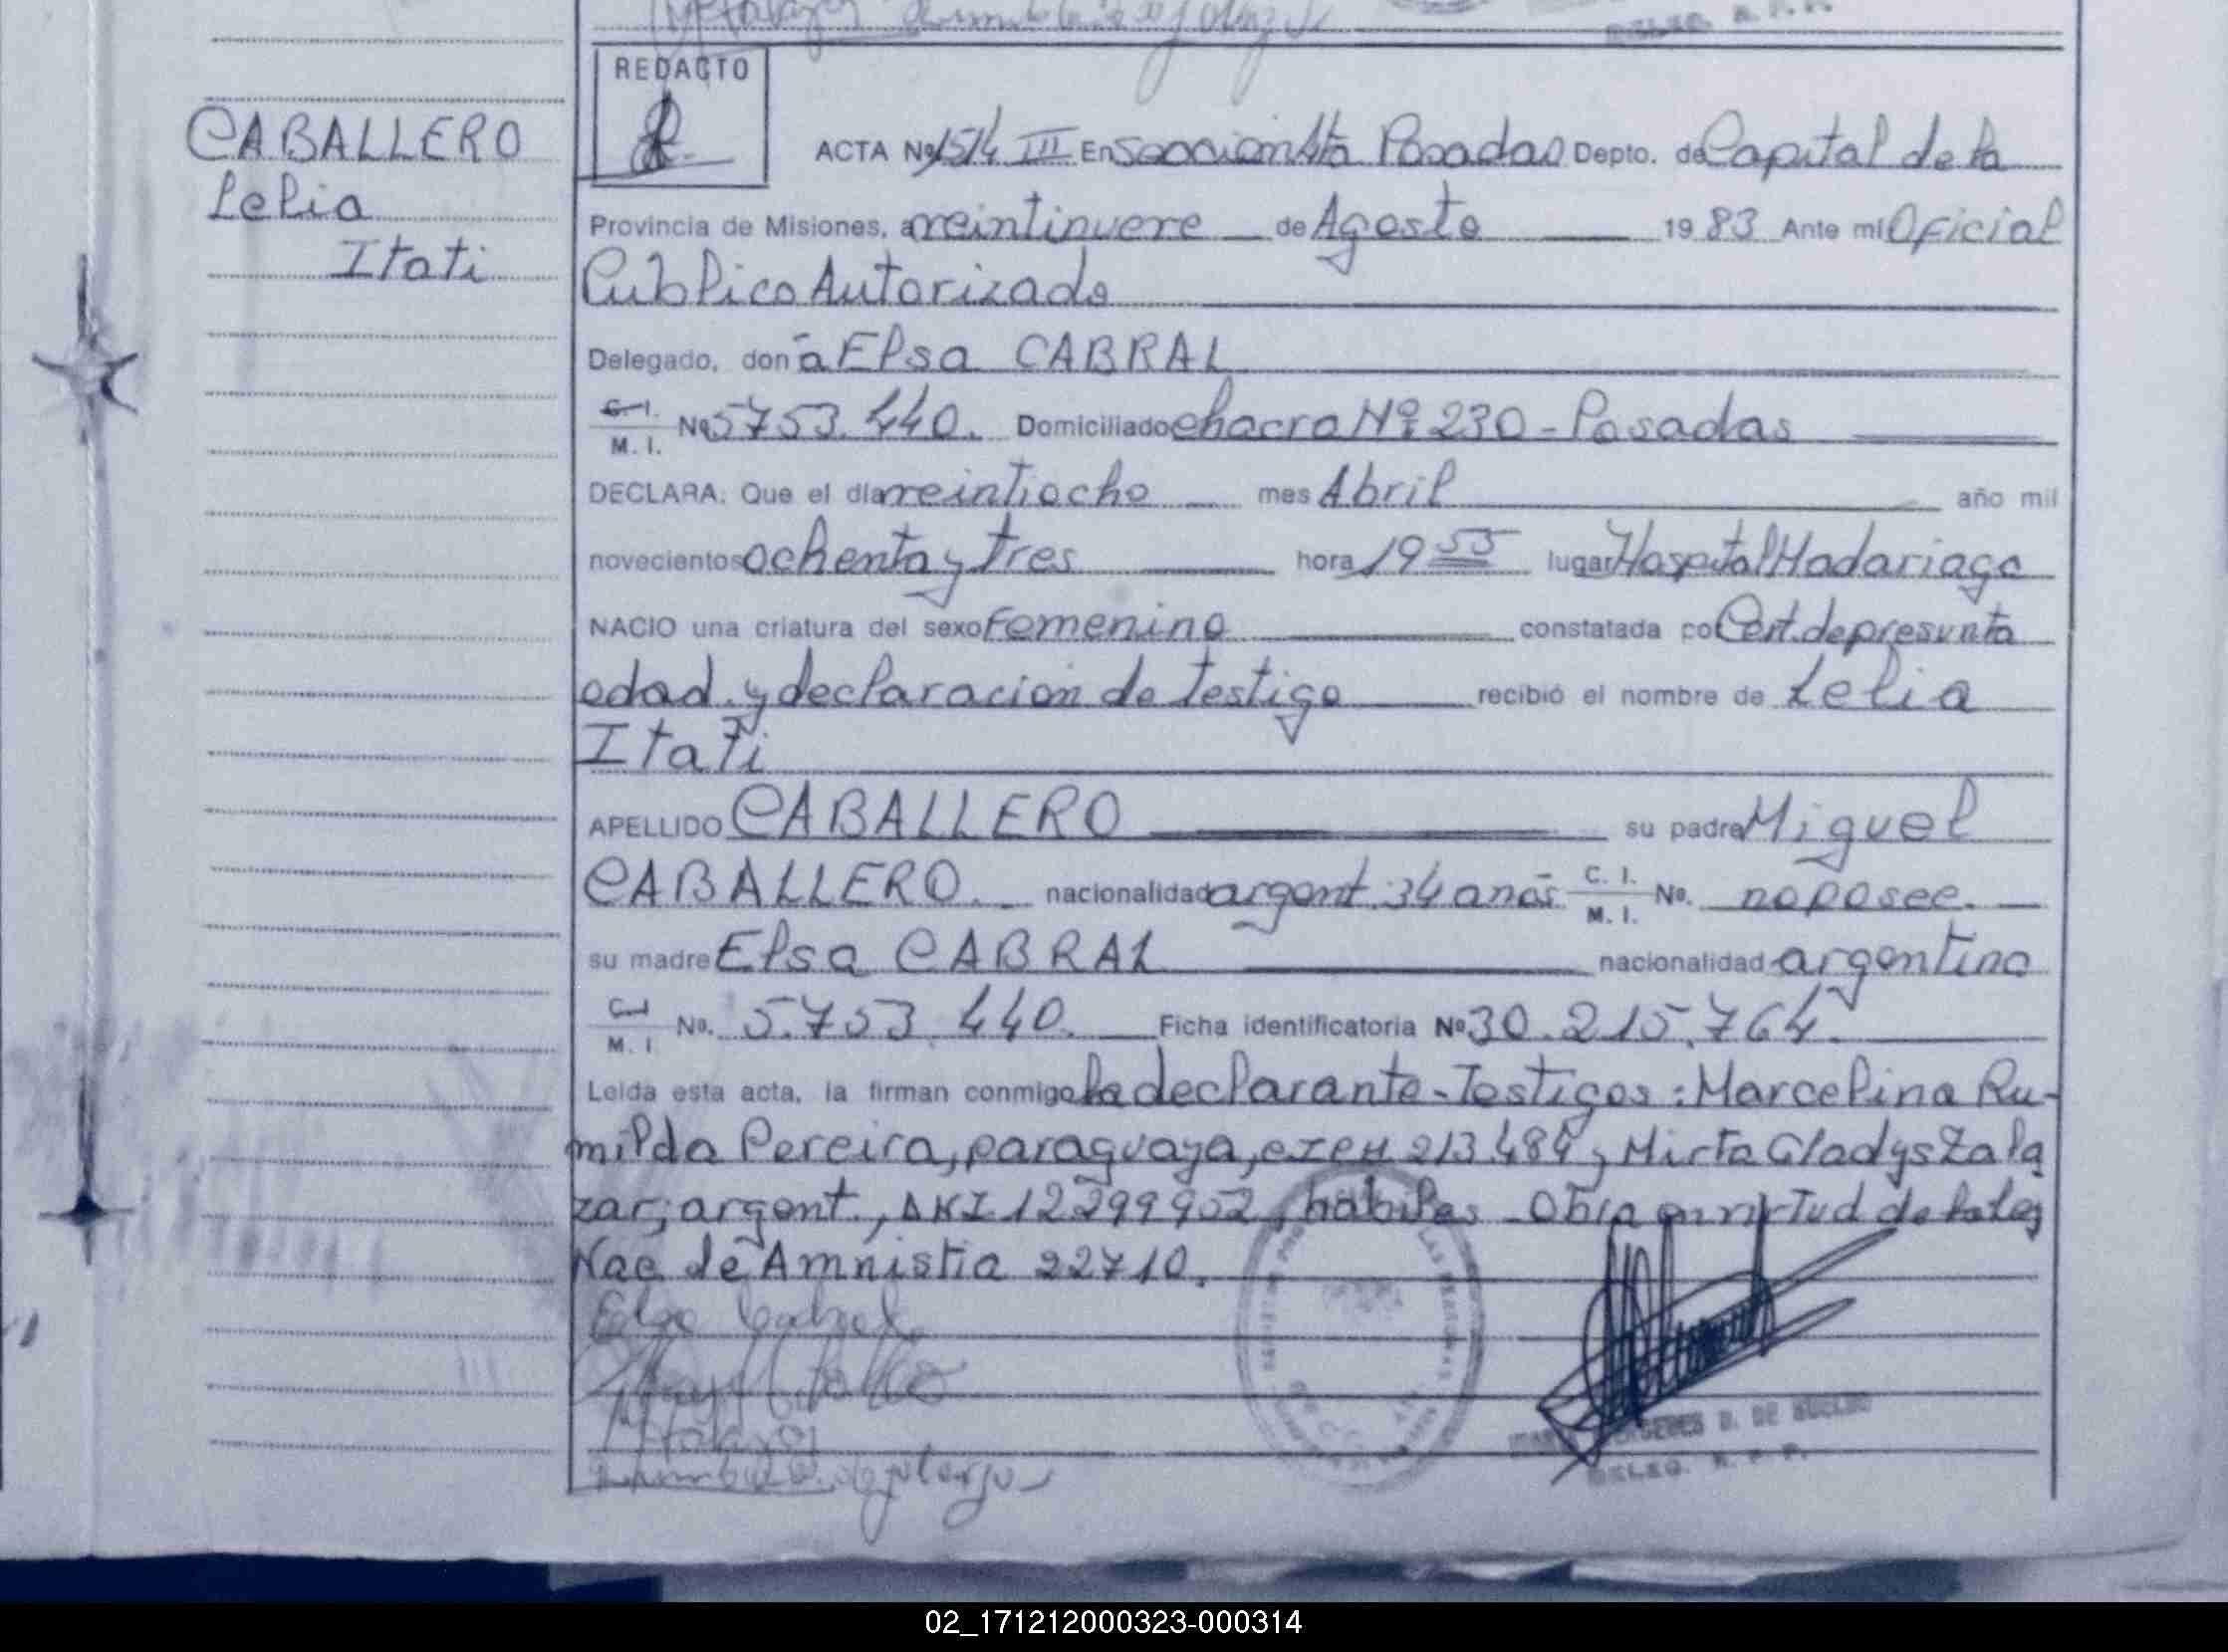 CABALLERO
Lelia
Itati
REDACTO
ACTA Nº 1514 III En seccion 4ta Posadas Depto. de Capital de la
Provincia de Misiones, a veintinueve de Agosto 1983 Ante mi Oficial
Publico Autorizado
Delegado, don ã Elsa CABRAL
C. I. M. I. Nº 5753.440. Domiciliado chacra Nº 230 - Posadas
DECLARA: Que el día veintiocho mes Abril año mil
novecientos ochenta y tres hora 19 55 lugar Hospital Madariaga
NACIO una criatura del sexo femenino constatada po Cert. de presunta
edad y declaracion de testigo recibió el nombre de Lelia
Itati
APELLIDO CABALLERO su padre Miguel
CABALLERO. nacionalidad argent. 34 anos C. I. M. I. No. no posee.
su madre Elsa CABRAL nacionalidad argentina
C. I. M. I No. 5.753.440. Ficha identificatoria Nº 30.215.764.
Leida esta acta, la firman conmigo la declarante - Testigos: Marcelina Ru-
milda Pereira, paraguaya, 213.484 y Mirta Gladys Zala
zar, argent., DNI 12299952, habiles - Obra en virtud de la ley
Nac de Amnistia 22710.
Elsa Cabral
B. DE SUELDO
DELEG. R. P. P.
02_171212000323-000314